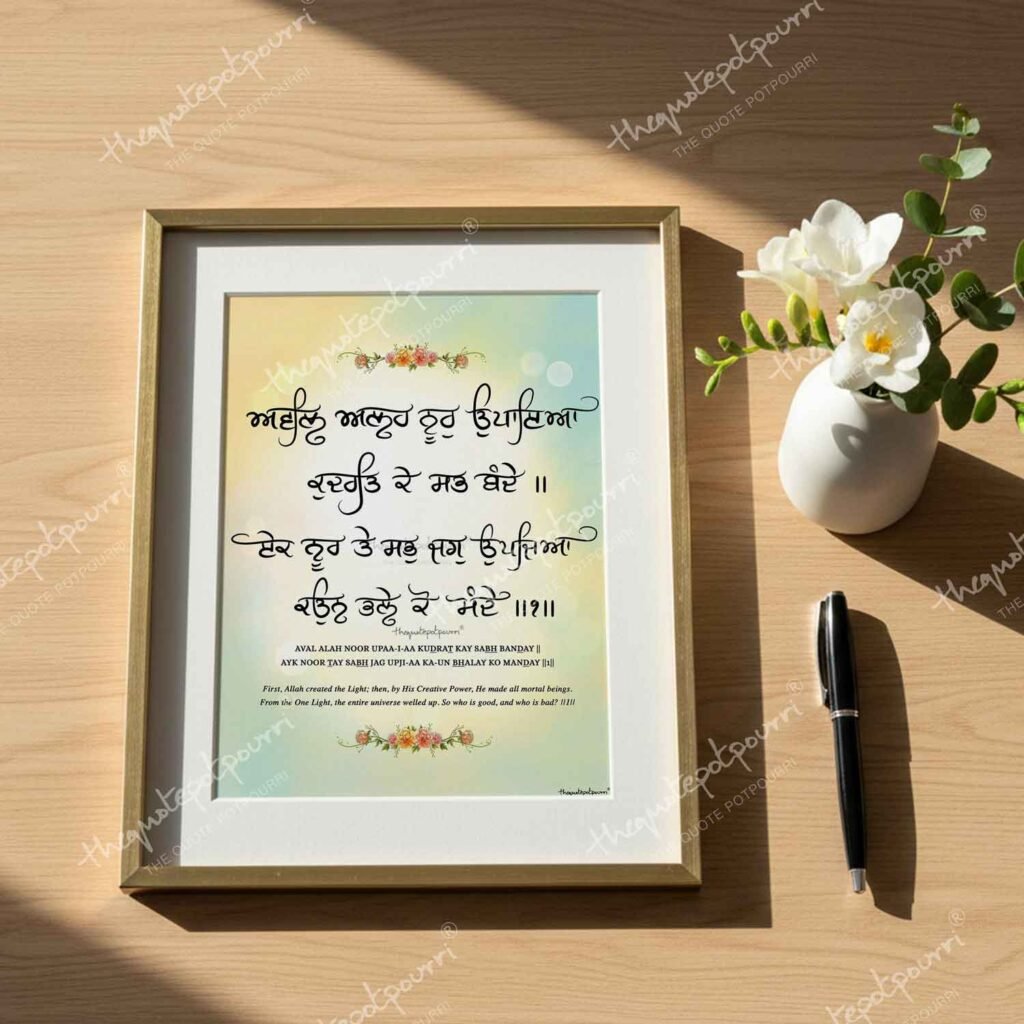 ਅਵਲਿ ਅਲਹ ਨੂਰੁ ਉਪਾਇਆ
ਕੁਦਰਤਿ ਕੇ ਸਭ ਬੰਦੇ ॥
ਏਕ ਨੂਰ ਤੇ ਸਭੁ ਜਗੁ ਉਪਜਿਆ
ਕਉਨ ਭਲੇ ਕੋ ਮੰਦੇ ॥੧॥
thequotepotpourri®
AVAL ALAH NOOR UPAA-I-AA KUDRAT KAY SABH BANDAY ||
AYK NOOR TAY SABH JAG UPJI-AA KA-UN BHALAY KO MANDAY ||1||
First, Allah created the Light; then, by His Creative Power, He made all mortal beings.
From the One Light, the entire universe welled up. So who is good, and who is bad? ||1||
thequotepotpourri®
thequotepotpourri®
THE QUOTE POTPOURRI